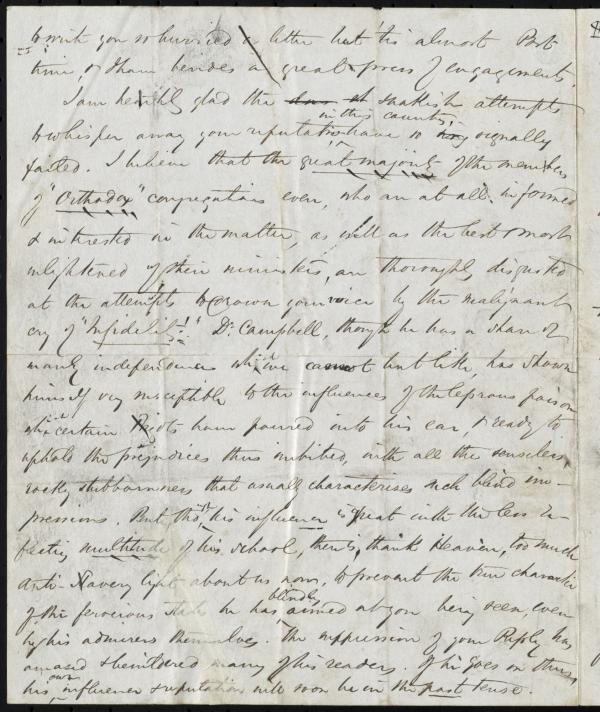 to wish you so hurried a letter but 'tis almost Post
time, & I have besides a great press of engagements.
I am heartily glad the snakish attempts
in this country,
to whisper away your reputation have so signally
failed. I believe that the great majority of the members
of "Orthodox" congregations even, who are at all informed
& interested in the matter, as well as the best & most
enlightened of their ministers, are thoroughly disgusted
at the attempts to drown your voice by the malignant
cry of "Infidelity!" Dr. Campbell, though he has a share of
manly independence which we cannot but like, has shown
himself very susceptible to the influences of the leprous poison
which certain Bigots have poured into his ear & ready to
uphold the prejudices thus imbibed, with all the senseless
rocky stubbornness that usually characterises such blind im-
pressions. But, tho' his influence is great with the less re-
flecting multitude of his school, there is, thank Heaven, too much
Anti-Slavery light about us now, to prevent the true character
blindly
of the ferocious stabs he has aimed at you being seen, even
by his admirers themselves. The suppression of your Reply has
amazed & bewildered many of his readers. If he goes on thus
own
his influence & reputation will soon be in the past tense.